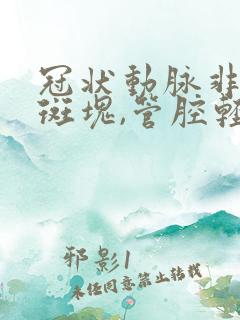 冠状動脉非
斑塊,管腔輕
邪影1
未经同意禁止转载